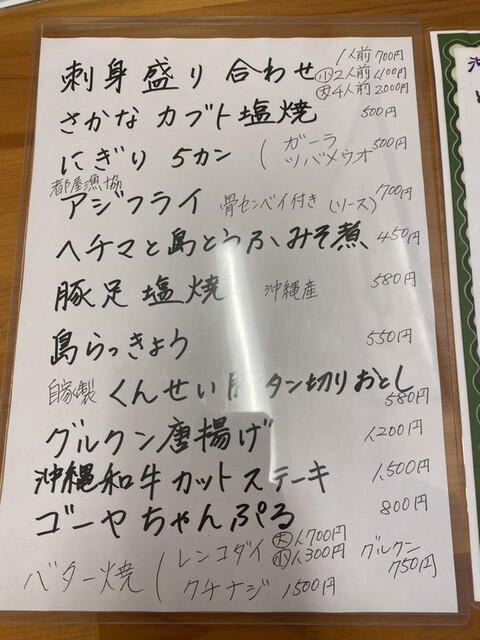 刺身盛り合わせ 1人前 700円
小 2人前 1,100円
大 4人前 2000円
さかなカブト塩焼 500円
にぎり 5カン ( ガーラ 500円
ツバメウオ
都屋漁協
アジフライ 骨センベイ付き (ソース) 700円
ヘチマと島とうふみそ煮 450円
豚足塩焼 沖縄産 580円
島らっきょう 550円
自家製 くんせい豚タン切りおとし
580円
グルクン唐揚げ 1,200円
沖縄和牛カットステーキ 1,500円
ゴーヤちゃんぷる 800円
バター焼 ( レンコダイ 大 1,700円
小 1,300円
クチナジ 1,500円
グルクン
750円